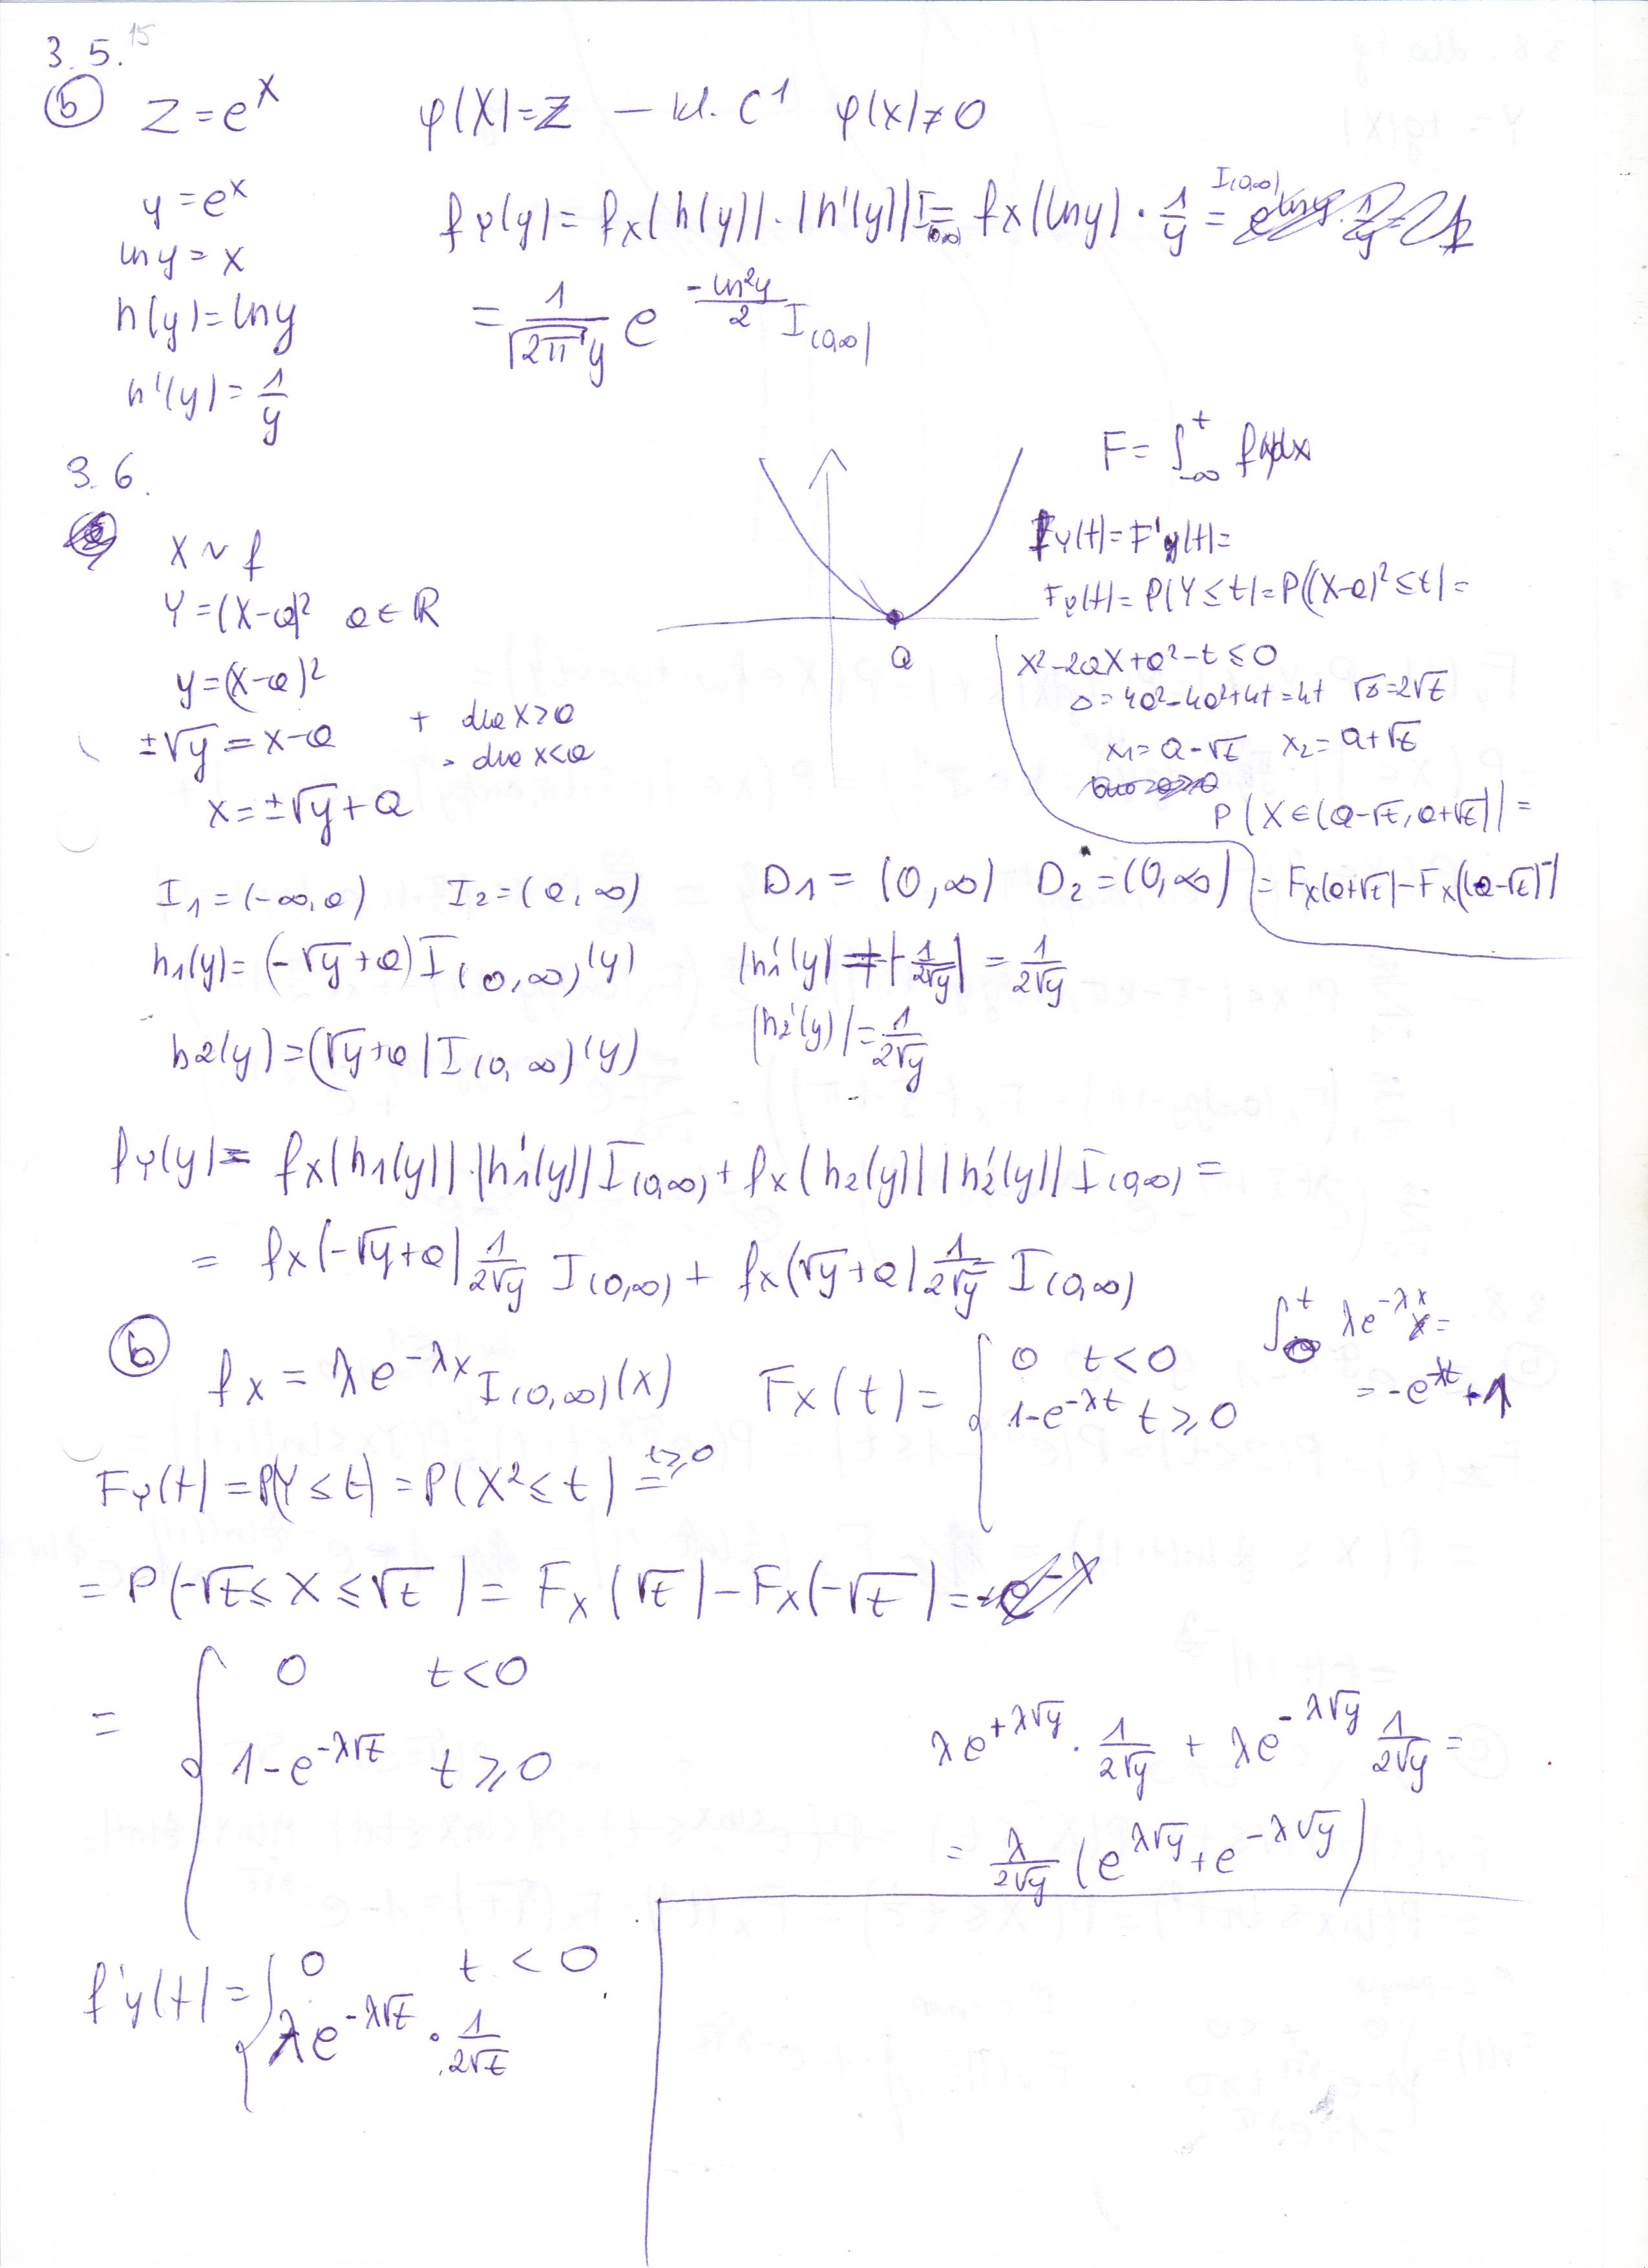 3.5. 15
(b) Z = e^X φ(X)=Z – kl. C^1 φ(x)≠0
y = e^x
ln y = x
h(y) = ln y
h'(y) = 1/y
f_Y(y) = f_X(h(y))·|h'(y)| I_(0,∞) = f_X(ln y) · 1/y I_(0,∞) =
= 1/(√2π y) e^(-ln²y/2) I_(0,∞)
3.6.
X ~ f
Y = (X-a)² a ∈ ℝ
y = (x-a)²
±√y = x-a + dla x>a
- dla x<a
x = ±√y + a
a
F = ∫_-∞^t f(x)dx
f_Y(t) = F'_Y(t) =
F_Y(t) = P(Y ≤ t) = P((X-a)² ≤ t) =
X²-2aX+a²-t ≤ 0
Δ = 4a²-4a²+4t = 4t √Δ = 2√t
x1 = a-√t x2 = a+√t
P(X∈(a-√t, a+√t)) =
= F_X(a+√t) - F_X((a-√t)^-)
I_1 = (-∞, a) I_2 = (a, ∞) D_1 = (0, ∞) D_2 = (0, ∞)
h_1(y) = (-√y + a) I_(0, ∞)(y) |h_1'(y)| = |-1/(2√y)| = 1/(2√y)
h_2(y) = (√y + a) I_(0, ∞)(y) |h_2'(y)| = 1/(2√y)
f_Y(y) = f_X(h_1(y))·|h_1'(y)| I_(0,∞) + f_X(h_2(y)) |h_2'(y)| I_(0,∞) =
= f_X(-√y + a) 1/(2√y) I_(0,∞) + f_X(√y + a) 1/(2√y) I_(0,∞)
(b) f_X = λe^(-λx) I_(0,∞)(x) F_X(t) = { 0 t < 0
1-e^(-λt) t ≥ 0
∫_0^t λe^(-λx) =
= -e^(-λt) + 1
F_Y(t) = P(Y ≤ t) = P(X² ≤ t) =^(t≥0)
= P(-√t ≤ X ≤ √t) = F_X(√t) - F_X(-√t) =
= { 0 t < 0
1-e^(-λ√t) t ≥ 0
λe^(+λ√y) · 1/(2√y) + λe^(-λ√y) 1/(2√y) =
= λ/(2√y) (e^(λ√y) + e^(-λ√y))
f'y(t) = { 0 t < 0
λe^(-λ√t) · 1/(2√t)